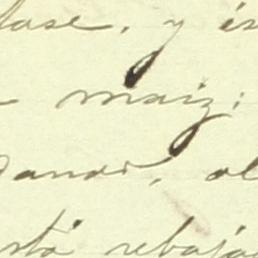 lase, y es
maiz;
ganar, al
stá rebaja